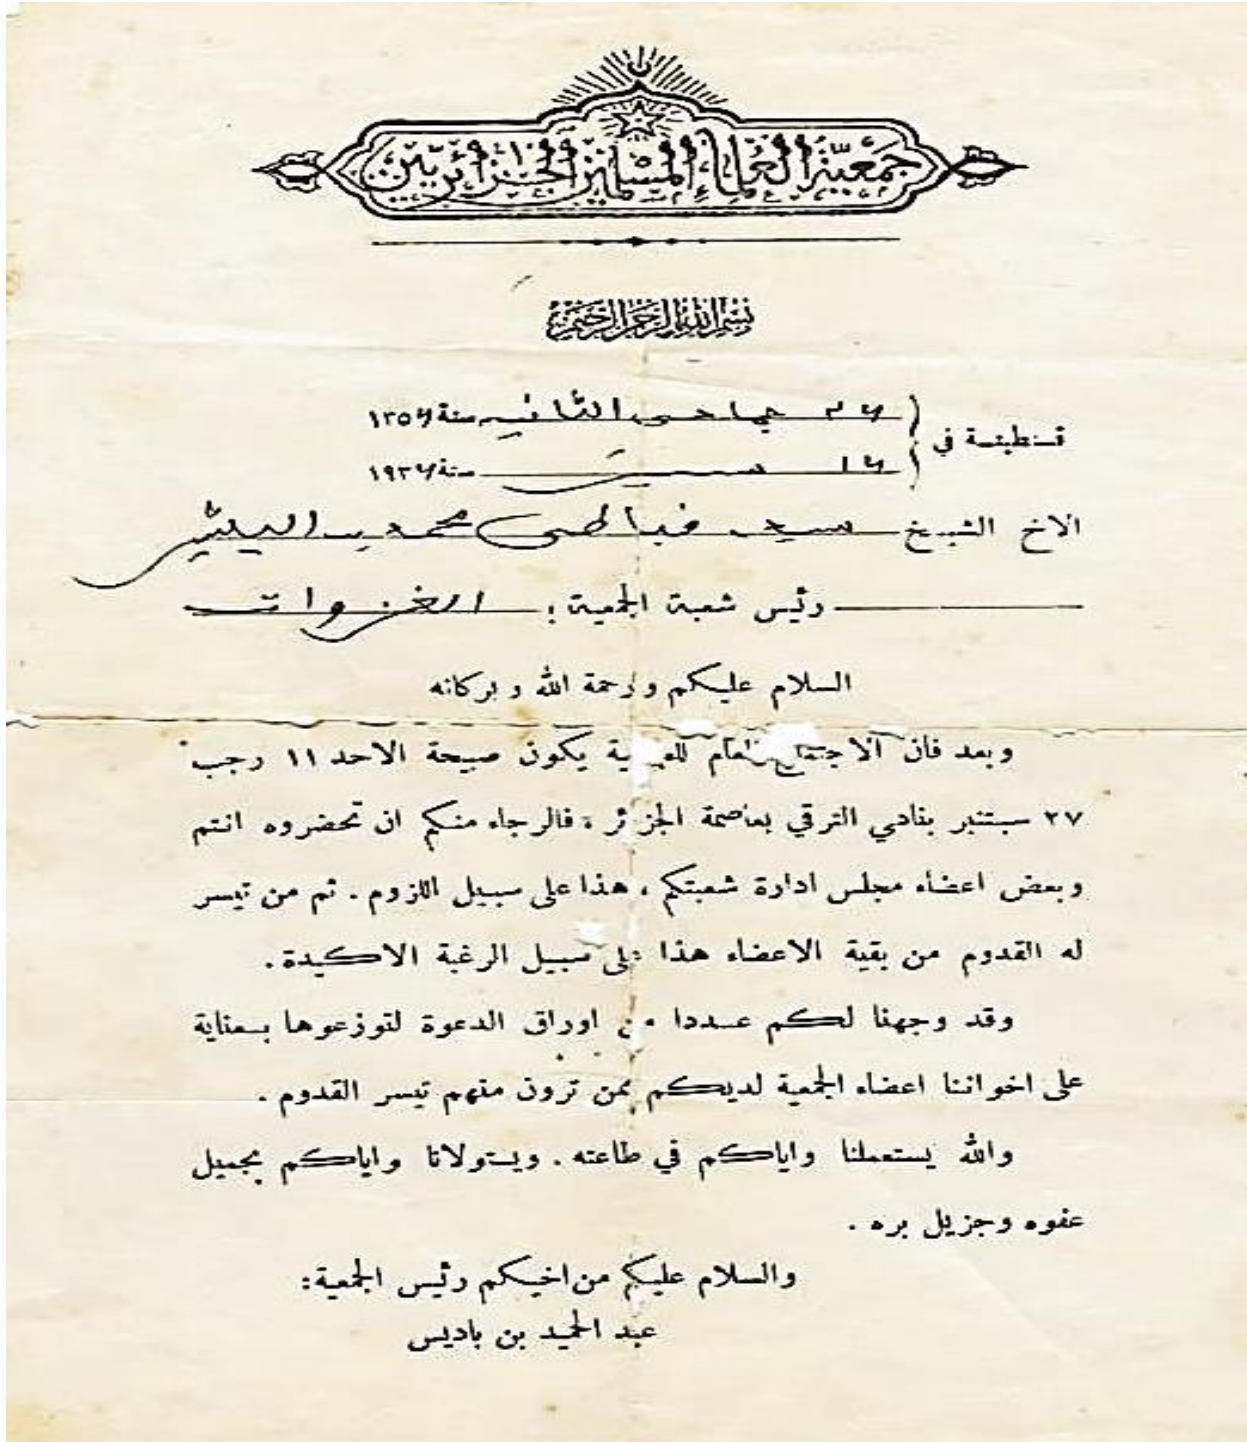 جمعية العلماء المسلمين الجزائريين
بسم الله الرحمن الرحيم
جمادى الثانية سنة
قسنطينة في
سنة
الاخ الشيخ محمد
رئيس شعبة الجمعية : الغزوات
السلام عليكم ورحمة الله وبركاته
وبعد فان الاجتماع العام يكون صبيحة الاحد ١١ رجب
٢٧ سبتنبر بنادي الترقي بعاصمة الجزائر ، فالرجاء منكم ان تحضروه انتم
وبعض اعضاء مجلس ادارة شعبتكم ، هذا على سبيل اللزوم . ثم من تيسر
له القدوم من بقية الاعضاء هذا على سبيل الرغبة الاكيدة .
وقد وجهنا لكم عددا من اوراق الدعوة لتوزعوها بعناية
على اخواننا اعضاء الجمعية لديكم ممن ترون منهم تيسر القدوم .
والله يستعملنا واياكم في طاعته . ويتولانا واياكم بجميل
عفوه وجزيل بره .
والسلام عليكم من اخيكم رئيس الجمعية :
عبد الحميد بن باديس